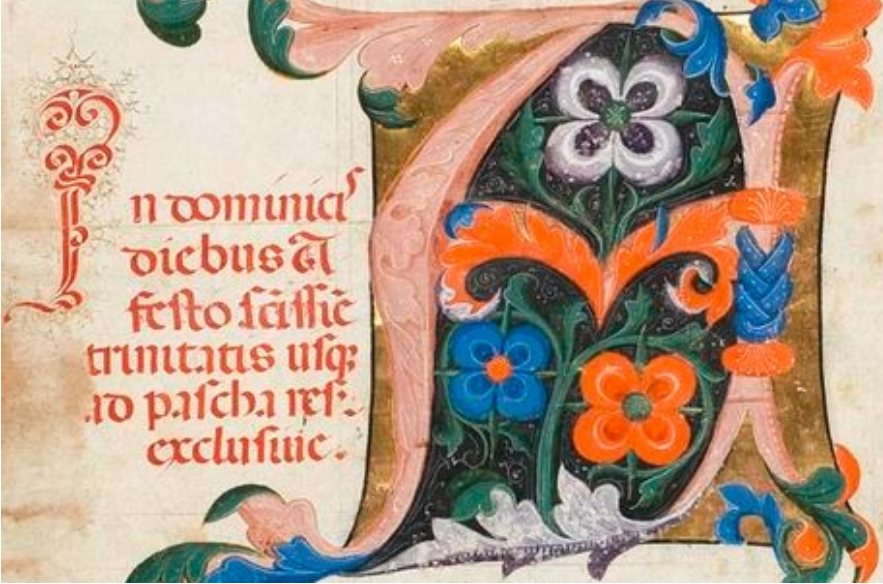 In dominicis
diebus a
festo sc̄issīe
trinitatis usq;
ad pascha res.
exclusive.
A